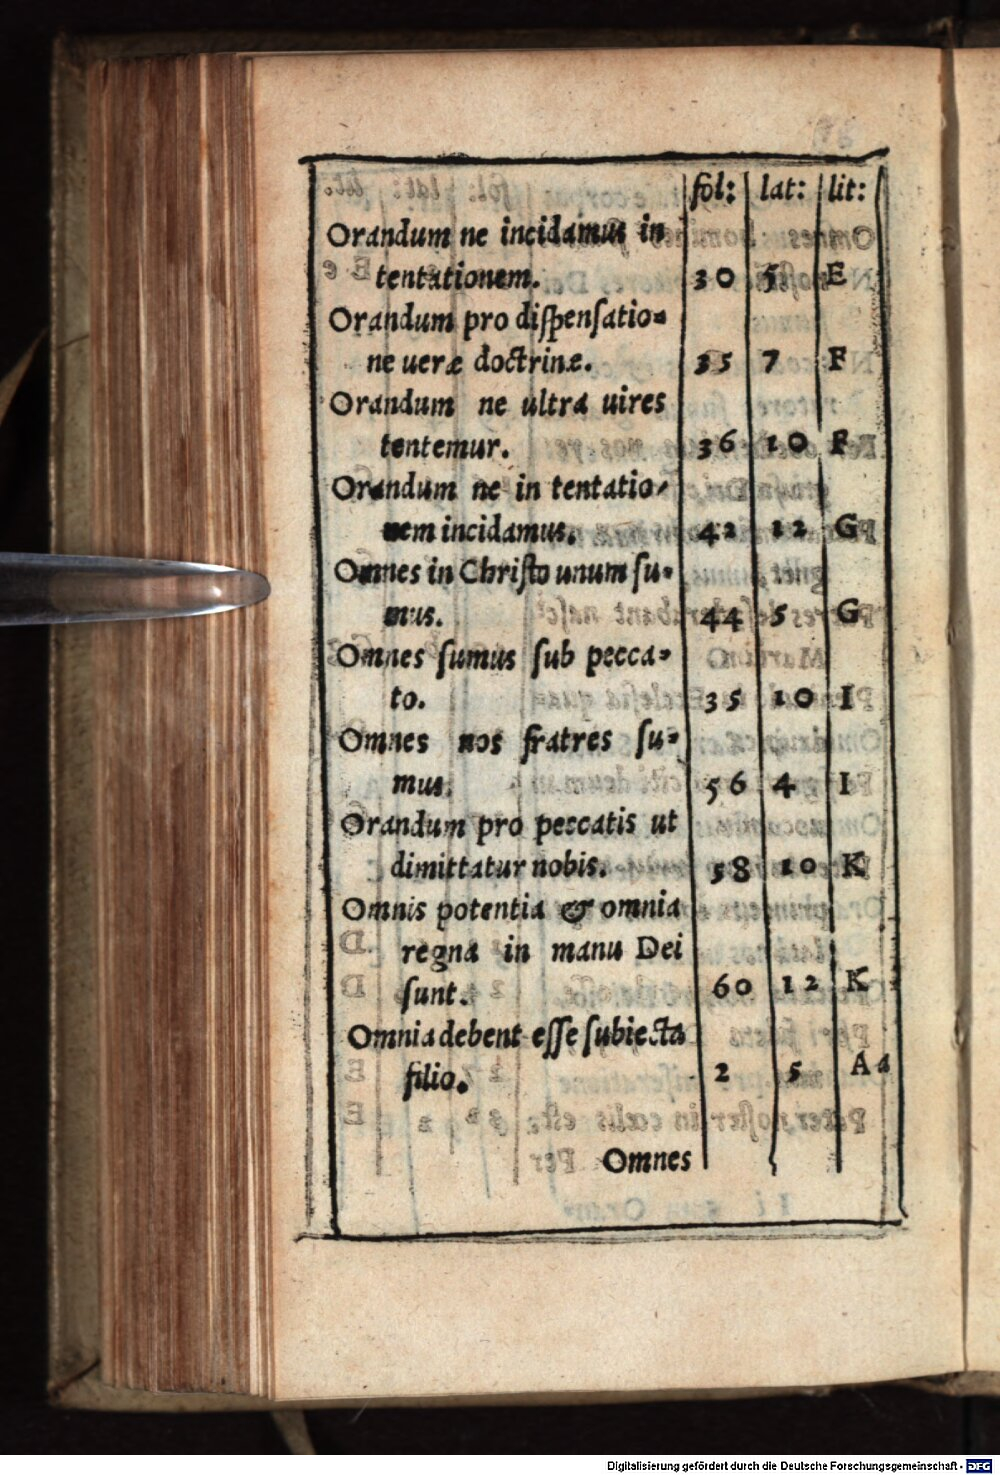 fol: lat: lit:
Orandum ne incidamus in
tentationem. 30 5 E
Orandum pro diſpenſatio⸗
ne ueræ doctrinæ. 35 7 F
Orandum ne ultra uires
tentemur. 36 10 F
Orandum ne in tentatio⸗
nem incidamus. 42 12 G
Omnes in Chriſto unum ſu⸗
mus. 44 5 G
Omnes ſumus ſub pecca⸗
to. 35 10 I
Omnes nos fratres ſu⸗
mus. 56 4 I
Orandum pro peccatis ut
dimittatur nobis. 58 10 K
Omnis potentia & omnia
regna in manu Dei
ſunt. 60 12 K
Omnia debent eſſe ſubiecta
filio. 2 5 Aa
Omnes
Digitalisierung gefördert durch die Deutsche Forschungsgemeinschaft - DFG